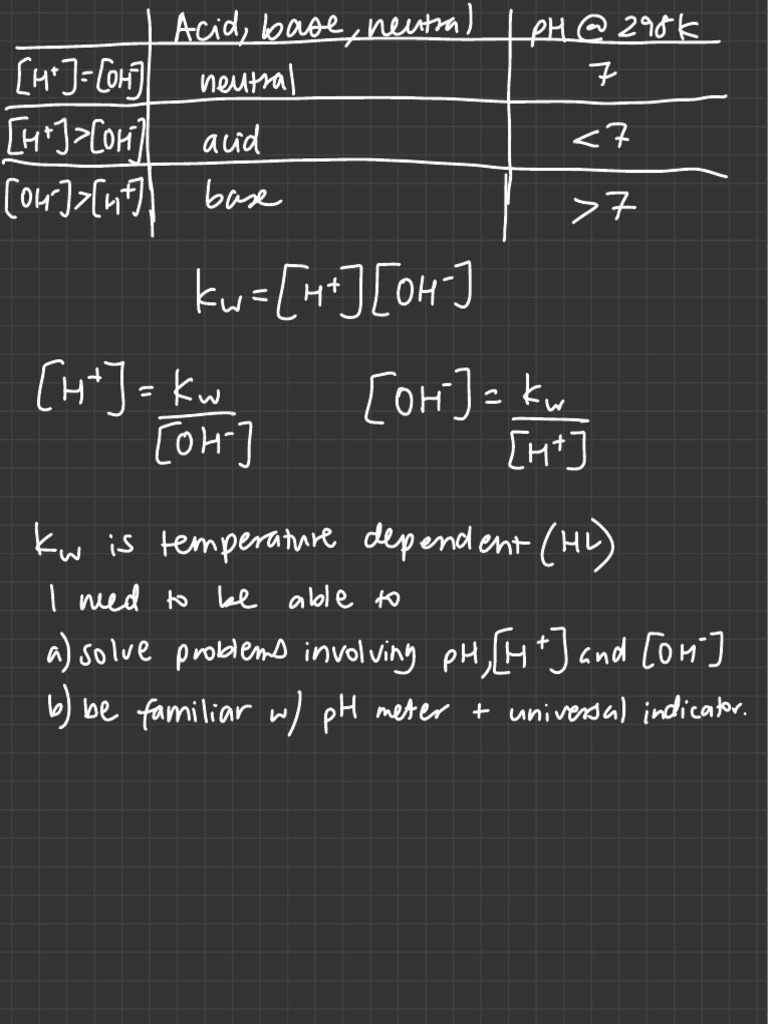 Acid, base, neutral pH @ 298K
[H⁺]=[OH⁻] neutral 7
[H⁺]>[OH⁻] acid <7
[OH⁻]>[H⁺] base >7
Kw=[H⁺][OH⁻]
[H⁺]=Kw/[OH⁻] [OH⁻]=Kw/[H⁺]
Kw is temperature dependent (HL)
I need to be able to
a) solve problems involving pH, [H⁺] and [OH⁻]
b) be familiar w/ pH meter + universal indicator.